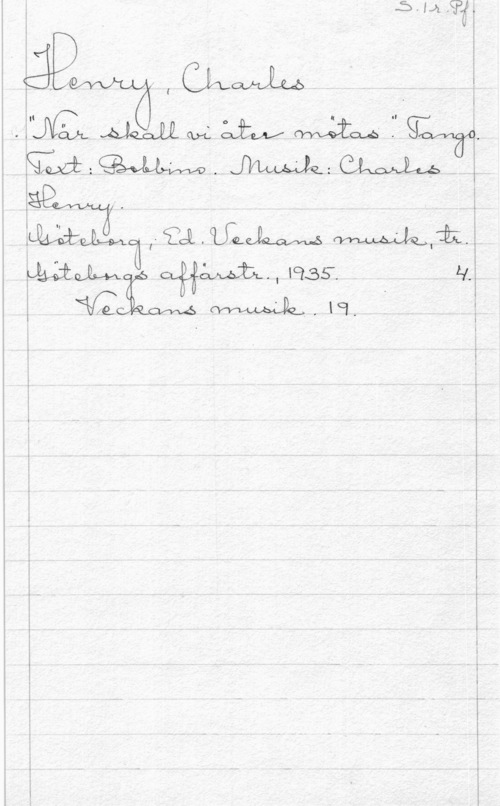 S. 1 r. Pf.
Henry, Charles
"När skall vi åter mötas." Tango.
Text: Bobbino. Musik: Charles
Henry.
Göteborg, Ed. Veckans musik, tr.
Göteborgs affärstr., 1935. 4.
Veckans musik. 19.